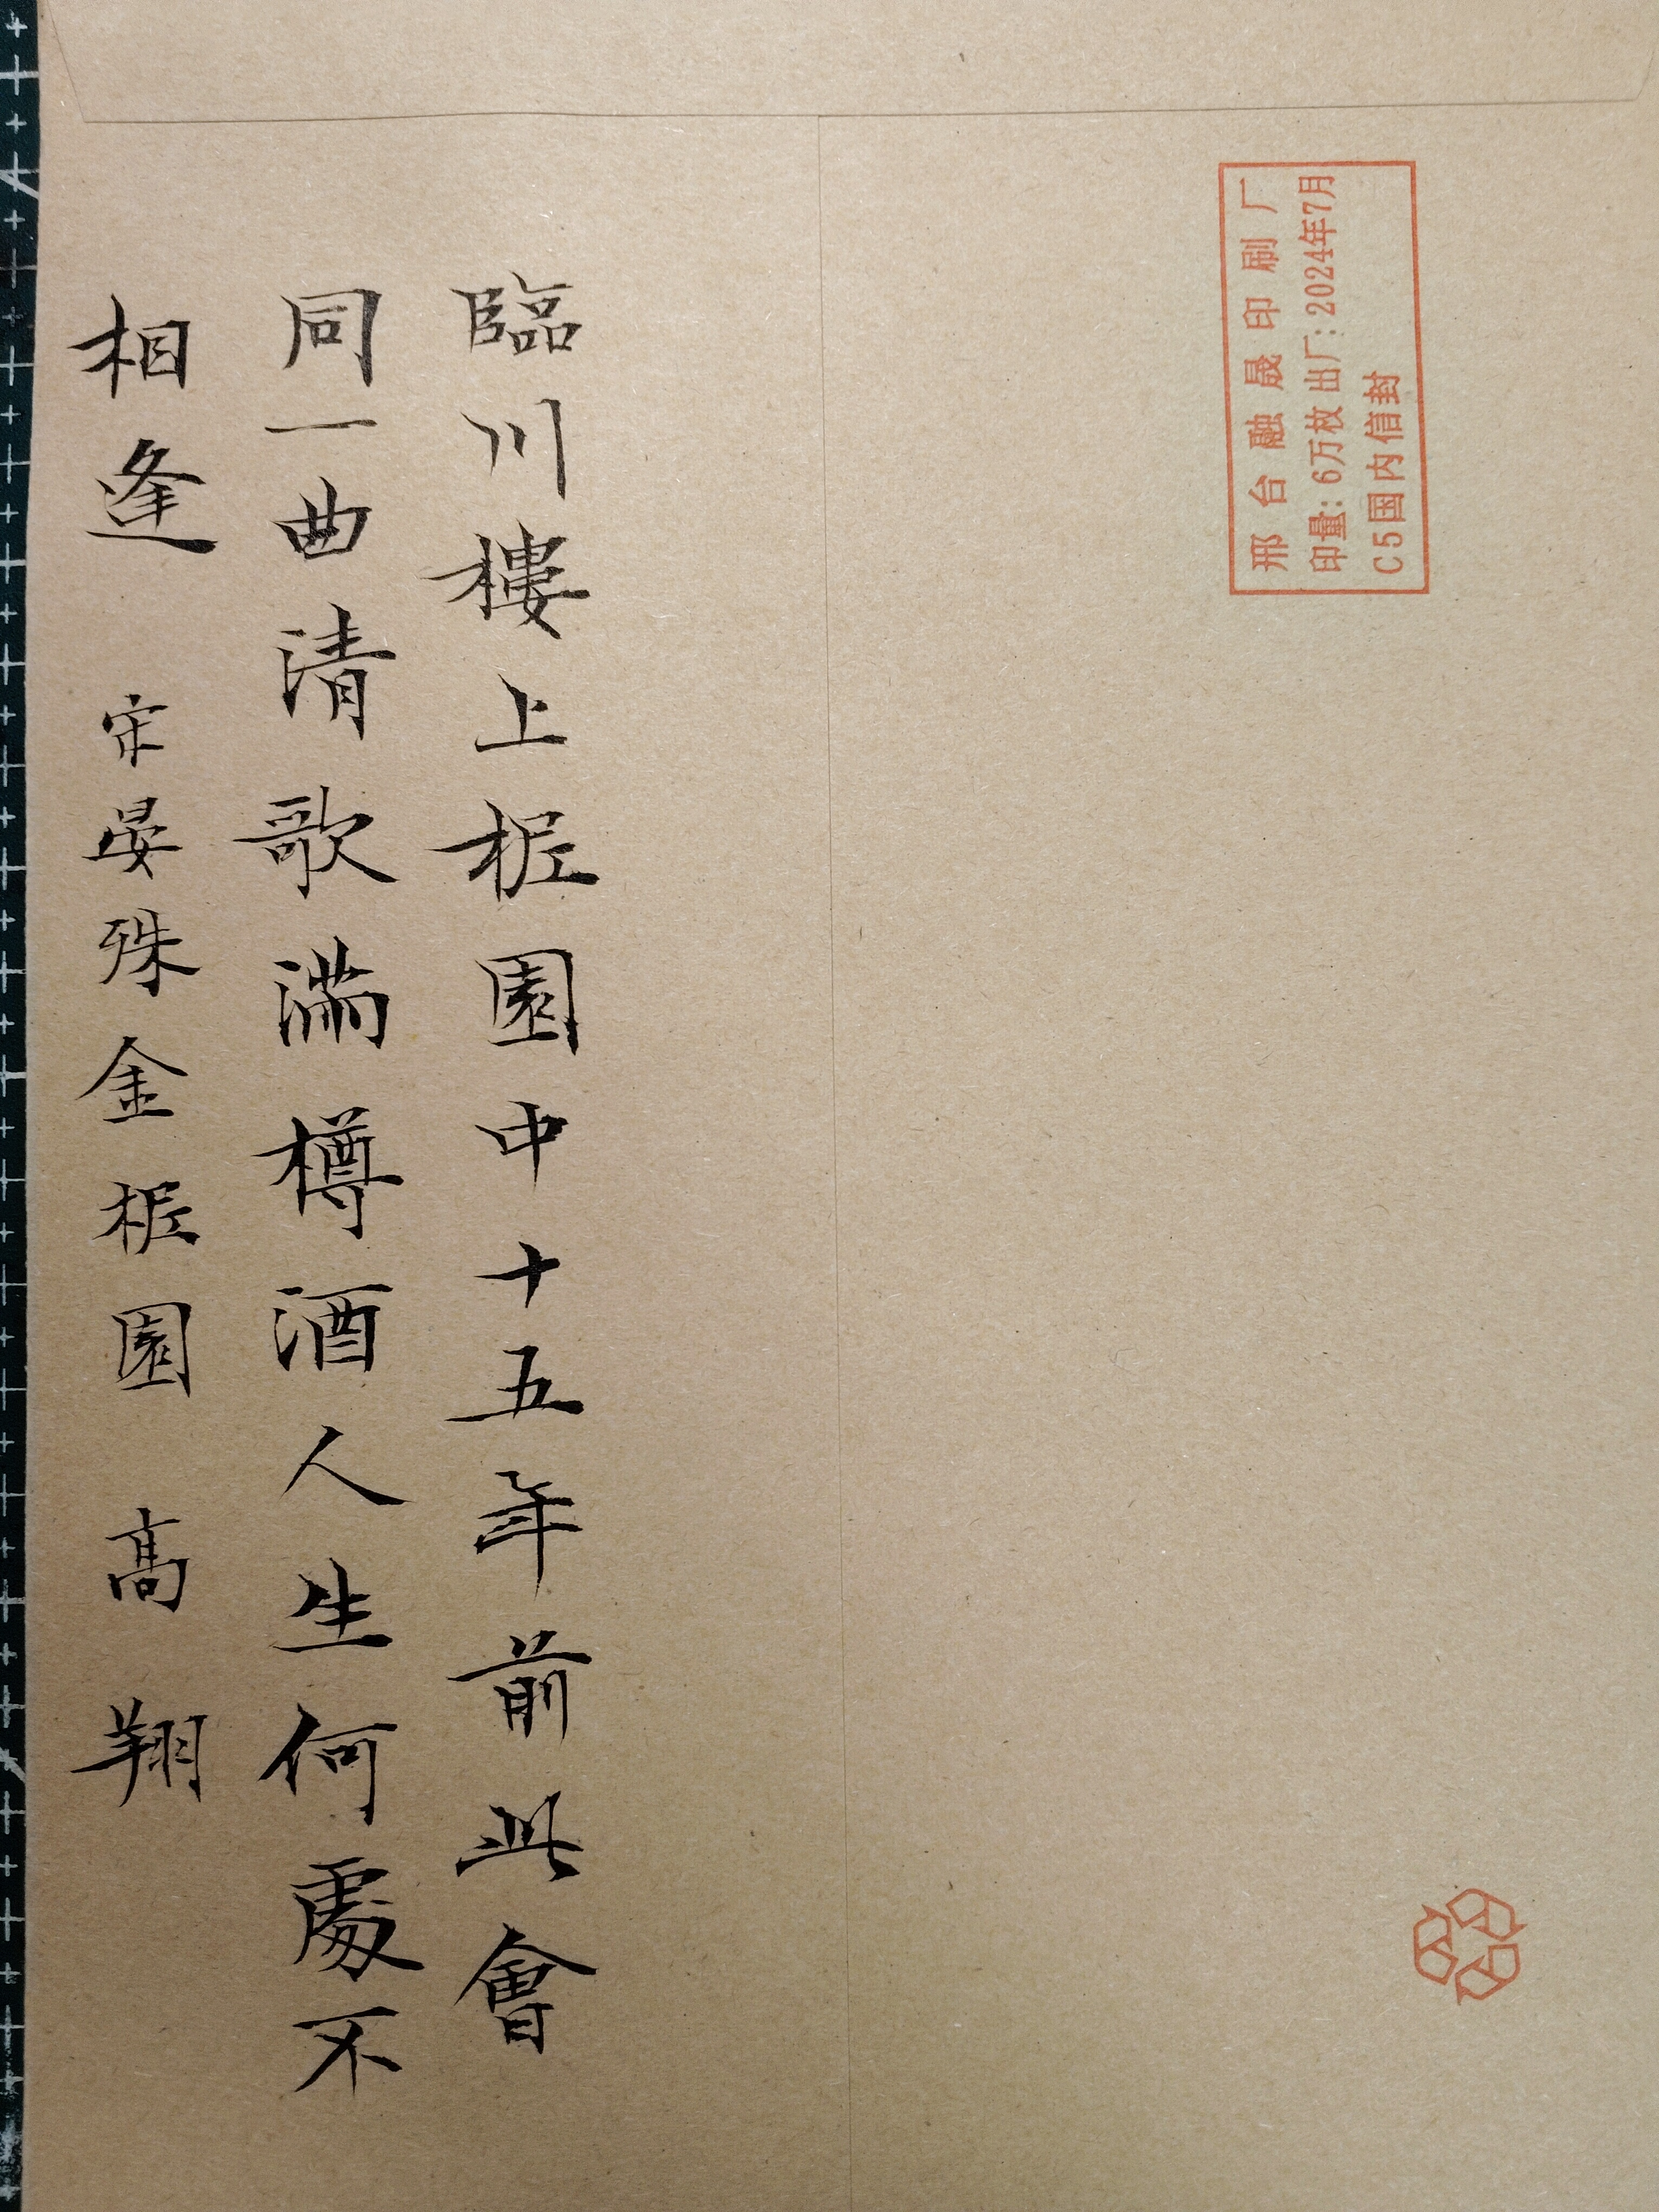 臨川樓上柅園中十五年前此會
同一曲清歌滿樽酒人生何處不
相逢 宋晏殊金柅園 高翔
邢台融晟印刷厂
印量:6万枚 出厂:2024年7月
C5国内信封